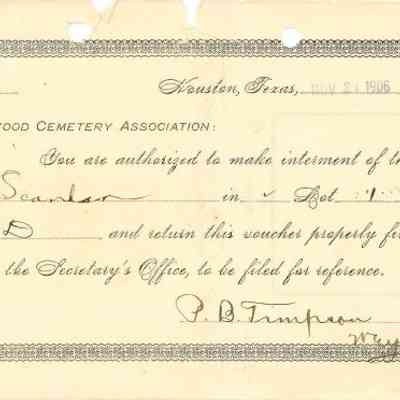 Houston, Texas, NOV 24 1906
WOOD CEMETERY ASSOCIATION:
You are authorized to make interment of th
Scanlan in Lot 1
D and return this voucher properly fi
the Secretary's Office, to be filed for reference.
P. B. Timpson